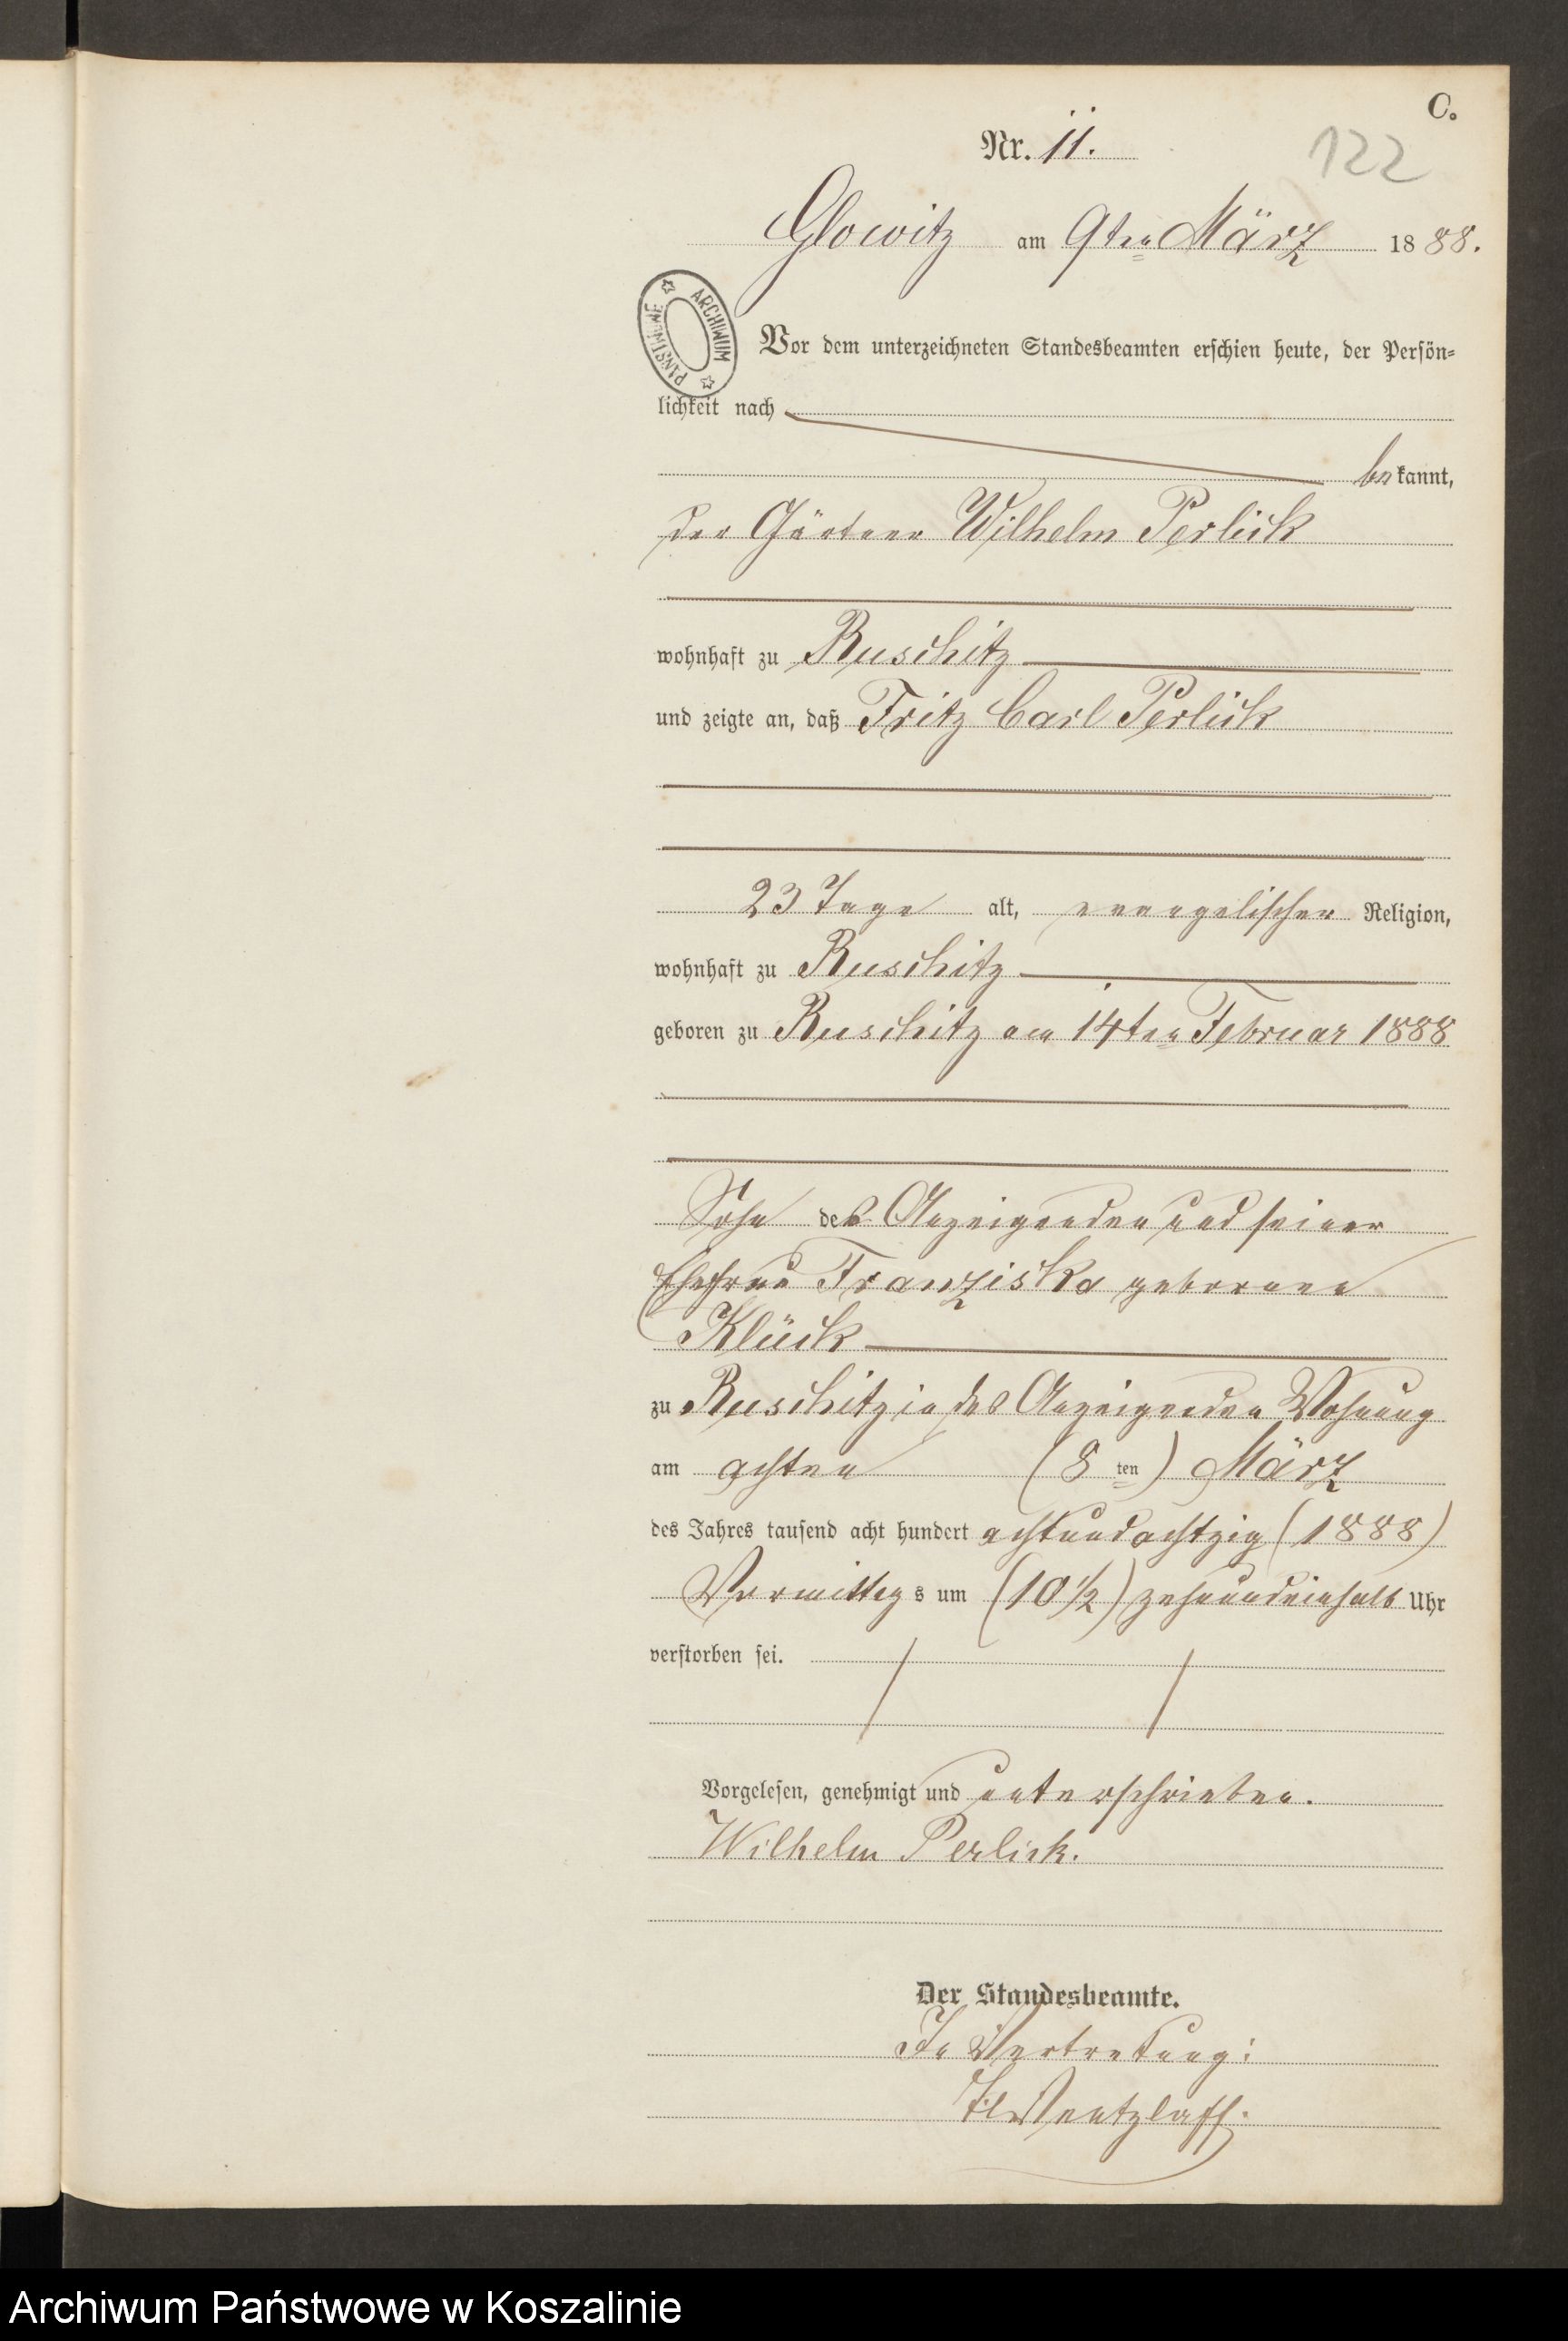 C.
Nr. 11.
122
Glowitz am 9ten März 1888.
ARCHIWUM PAŃSTWOWE
Vor dem unterzeichneten Standesbeamten erschien heute, der Persön-
lichkeit nach
bekannt,
der Gärtner Wilhelm Perlick
wohnhaft zu Ruschitz
und zeigte an, daß Fritz Carl Perlick
23 Tage alt, evangelischer Religion,
wohnhaft zu Ruschitz
geboren zu Ruschitz am 14ten Februar 1888
Sohn des Anzeigenden und seiner
Ehefrau Franziska geborenen
Klück
zu Ruschitz in des Anzeigenden Wohnung
am achten (8 ten) März
des Jahres tausend acht hundert achtundachtzig (1888)
Vormittags um (10 1/2) zehnundeinhalb Uhr
verstorben sei.
Vorgelesen, genehmigt und unterschrieben.
Wilhelm Perlick.
Der Standesbeamte.
In Vertretung:
Wentzlaff.
Archiwum Państwowe w Koszalinie